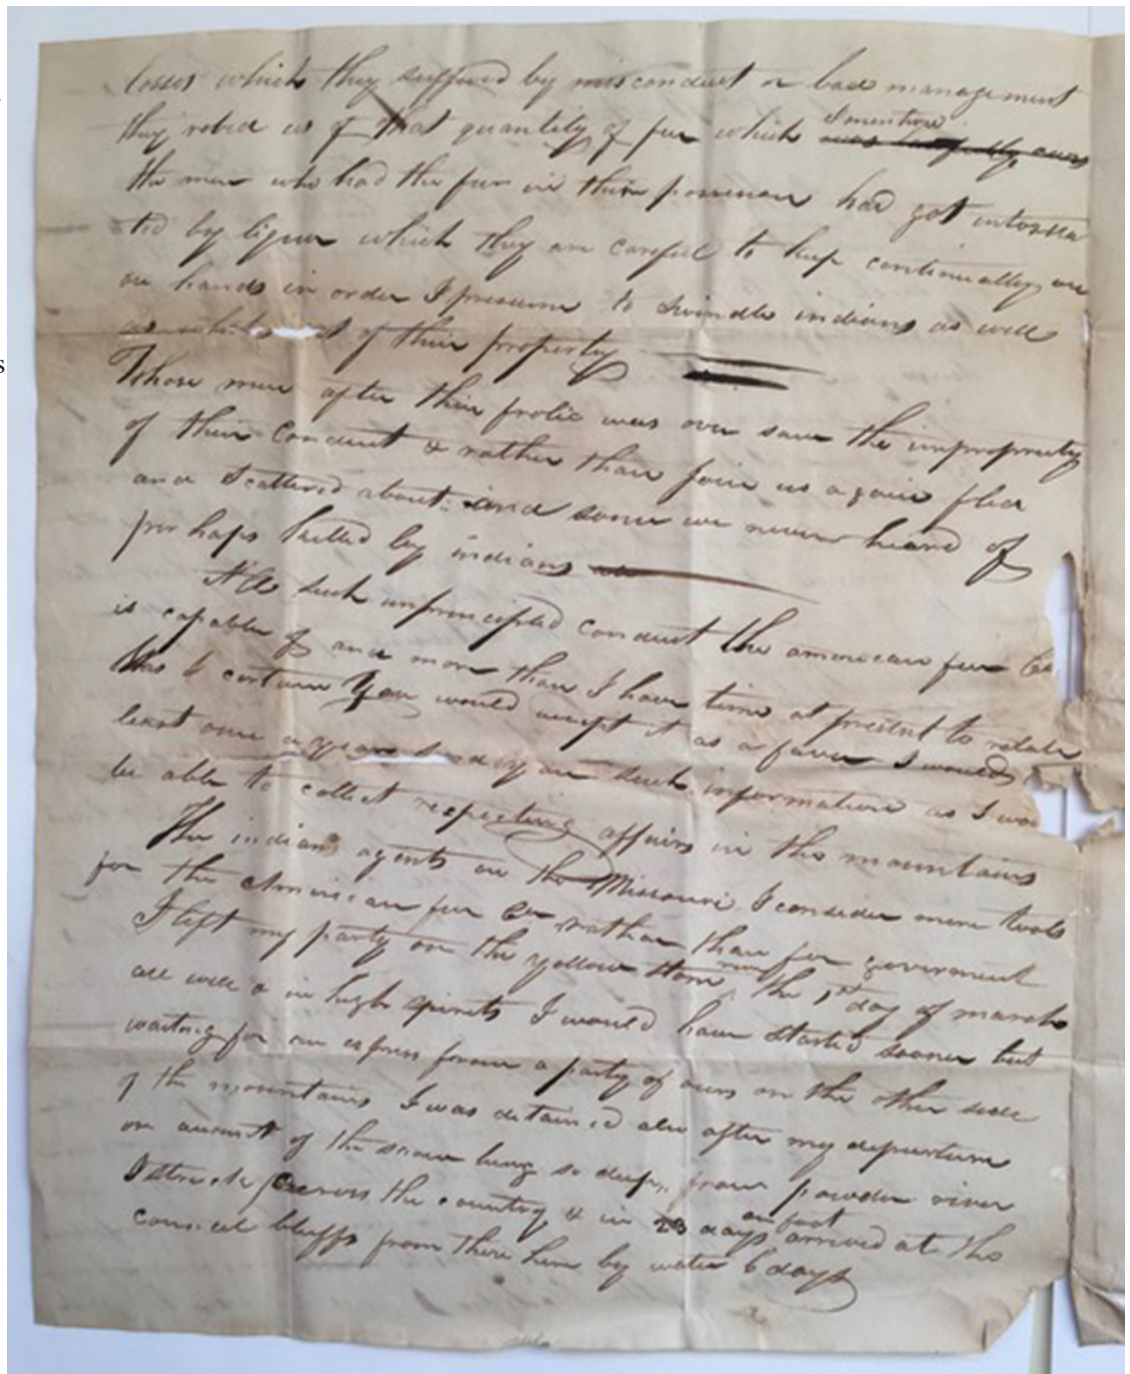 losses which they suffered by misconduct or bad management
they robed us of that quantity of fur which I mention
the men who had the fur in their possession had got intoxica
ted by liquor which they are careful to keep continually on
on hands in order I presume to swindle indians as well
as whites of their property
Those men after their frolic was over saw the impropriety
of their conduct & rather than join us again fled
and scattered about: and some we never heard of
perhaps killed by indians
such unprincipled conduct the american fur Co
is capable of and more than I have time at present to relate
certain You would accept it as a favour I would
least once a year send you such information as I wou
be able to collect respecting affairs in the mountains
The indians agents on the Missouri I consider mere tools
for the American fur Co rather than for goverment
I left my party on the yellow stone river the 1st day of march
all well & in high spirits I would have started sooner but
waiting for an express from a party of ours on the other side
of the mountains I was detained also after my departure
on account of the snow being so deep, from powder river
I struck across the country & in 23 days on foot arrived at the
council bluffs from there here by water 6 days
s